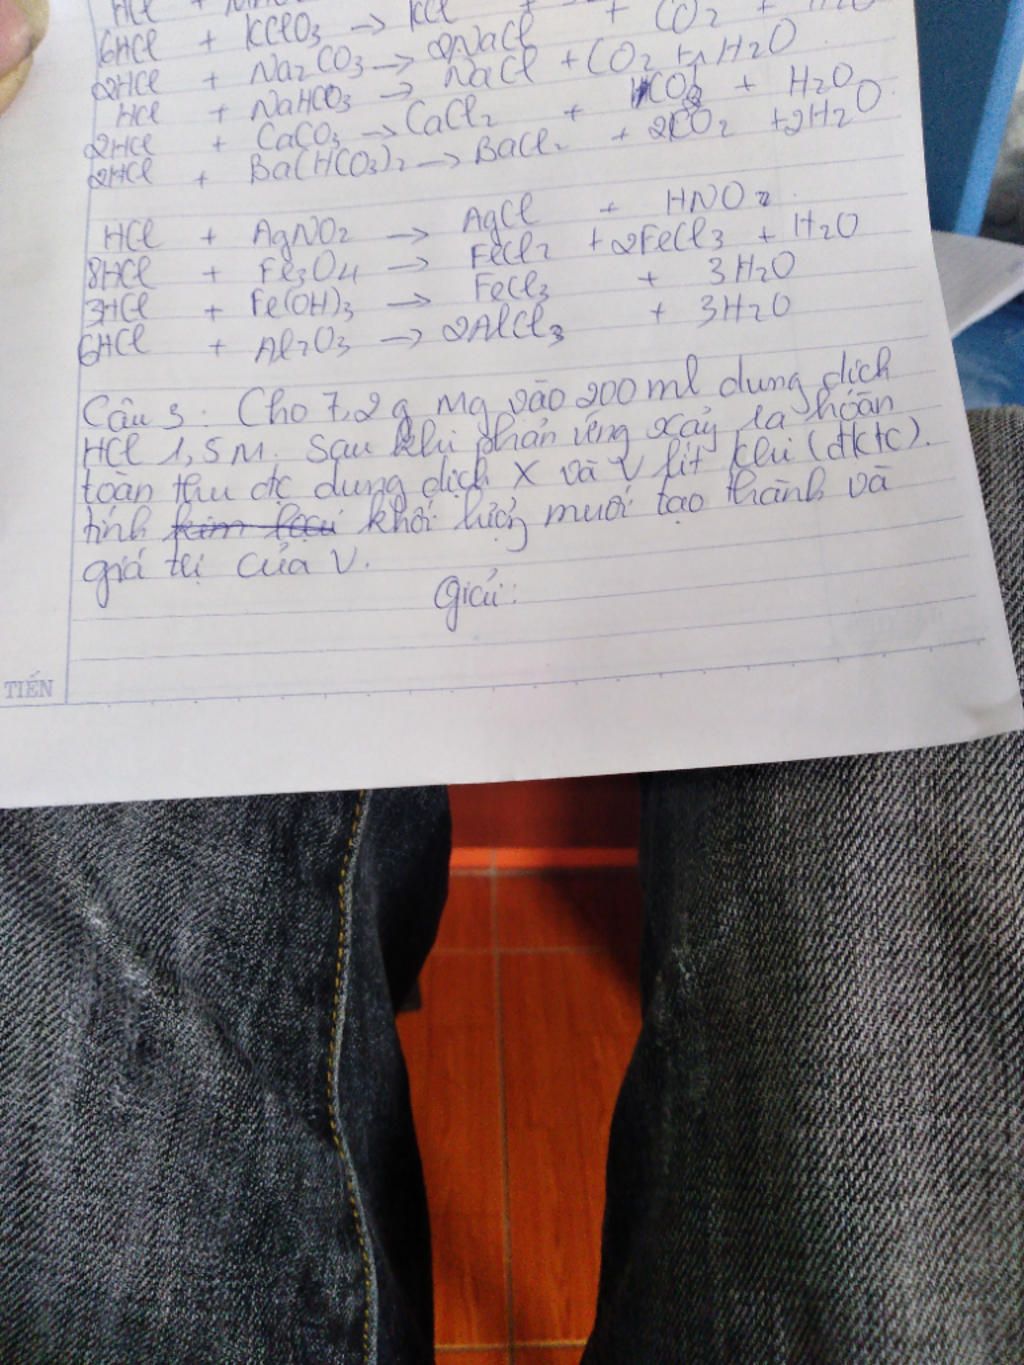 6HCl + KClO3 → KCl + 
2HCl + Na2CO3 → 2NaCl + CO2 + H2O
HCl + NaHCO3 → NaCl + CO2 + H2O
2HCl + CaCO3 → CaCl2 + CO2 + H2O
2HCl + Ba(HCO3)2 → BaCl2 + 2CO2 + 2H2O
HCl + AgNO2 → AgCl + HNO2
8HCl + Fe3O4 → FeCl2 + 2FeCl3 + H2O
3HCl + Fe(OH)3 → FeCl3 + 3H2O
6HCl + Al2O3 → 2AlCl3 + 3H2O
Câu 3: Cho 7,2g Mg vào 200ml dung dịch
HCl 1,5M. Sau khi phản ứng xảy ra hoàn
toàn thu đc dung dịch X và V lít khí (đktc).
tính kim loại khối lượng muối tạo thành và
giá trị của V.
Giải:
TIẾN